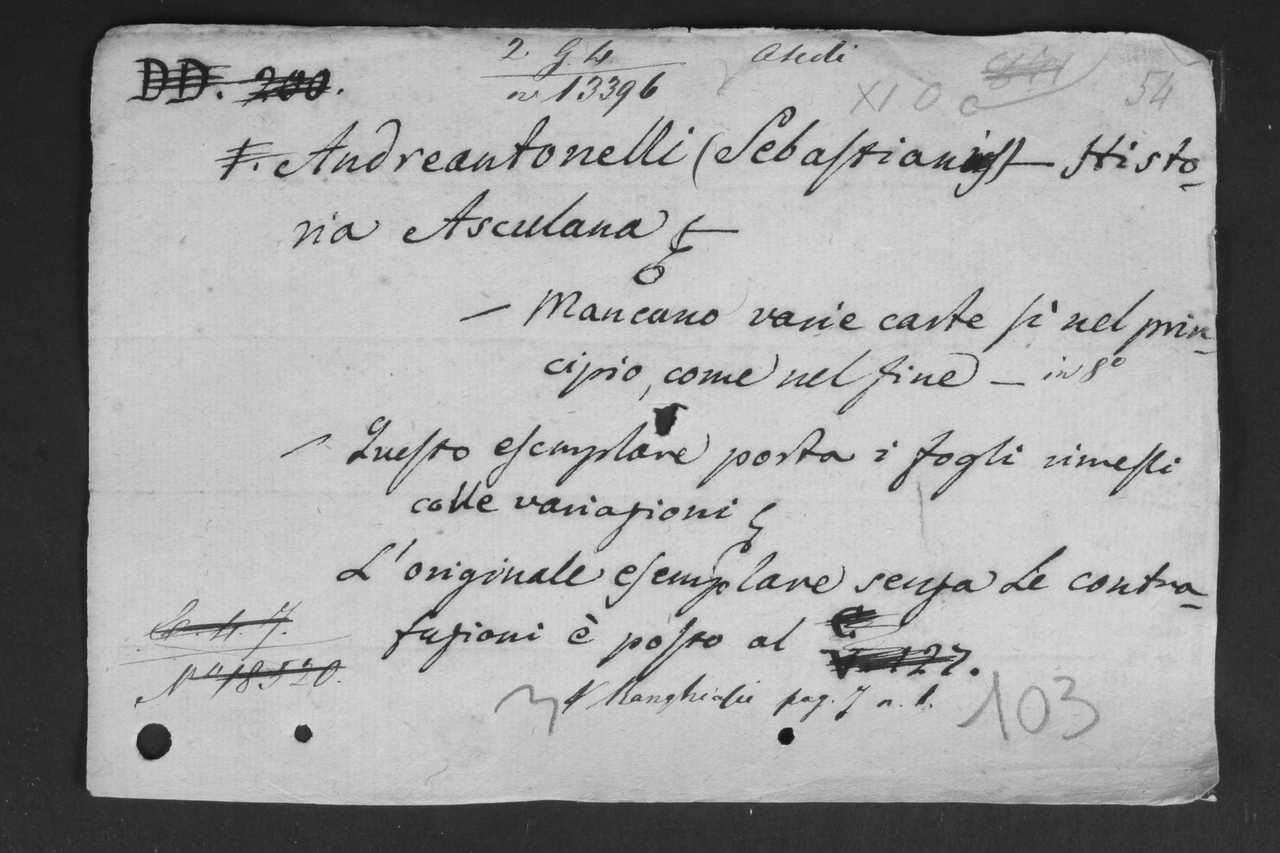 DD. 200.
2. G. 4
n° 13396
54
F. Andreantonelli (Sebastiani) Histo-
ria Asculana
- Mancano varie carte sì nel prin-
cipio, come nel fine - in 8°
- Questo esemplare porta i fogli rimessi
colle variazioni
L'originale esemplare senza le contra-
fazioni è posto al 127.
N° 18520.
Ranghiasci pag. 7 n. 1.
103